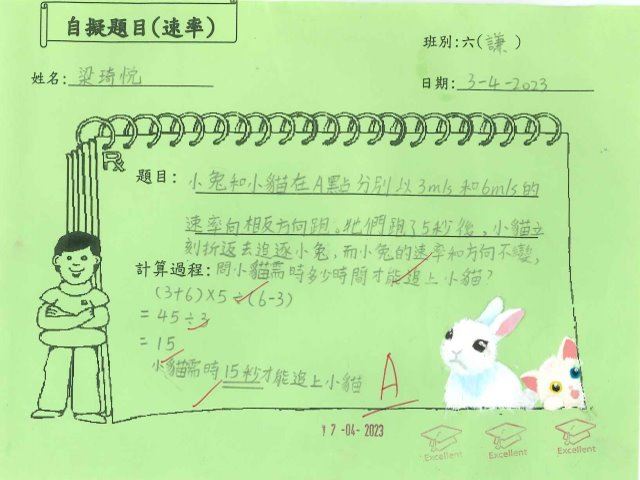 自擬題目(速率)
班別:六(謙)
姓名:梁琦悅
日期:3-4-2023
題目:小兔和小貓在A點分別以3m/s和6m/s的
速率向相反方向跑。牠們跑了5秒後,小貓立
刻折返去追逐小兔,而小兔的速率和方向不變,
計算過程:問小貓需時多少時間才能追上小貓?
(3+6)×5÷(6-3)
=45÷3
=15
小貓需時15秒才能追上小貓
A
17-04-2023
Excellent Excellent Excellent